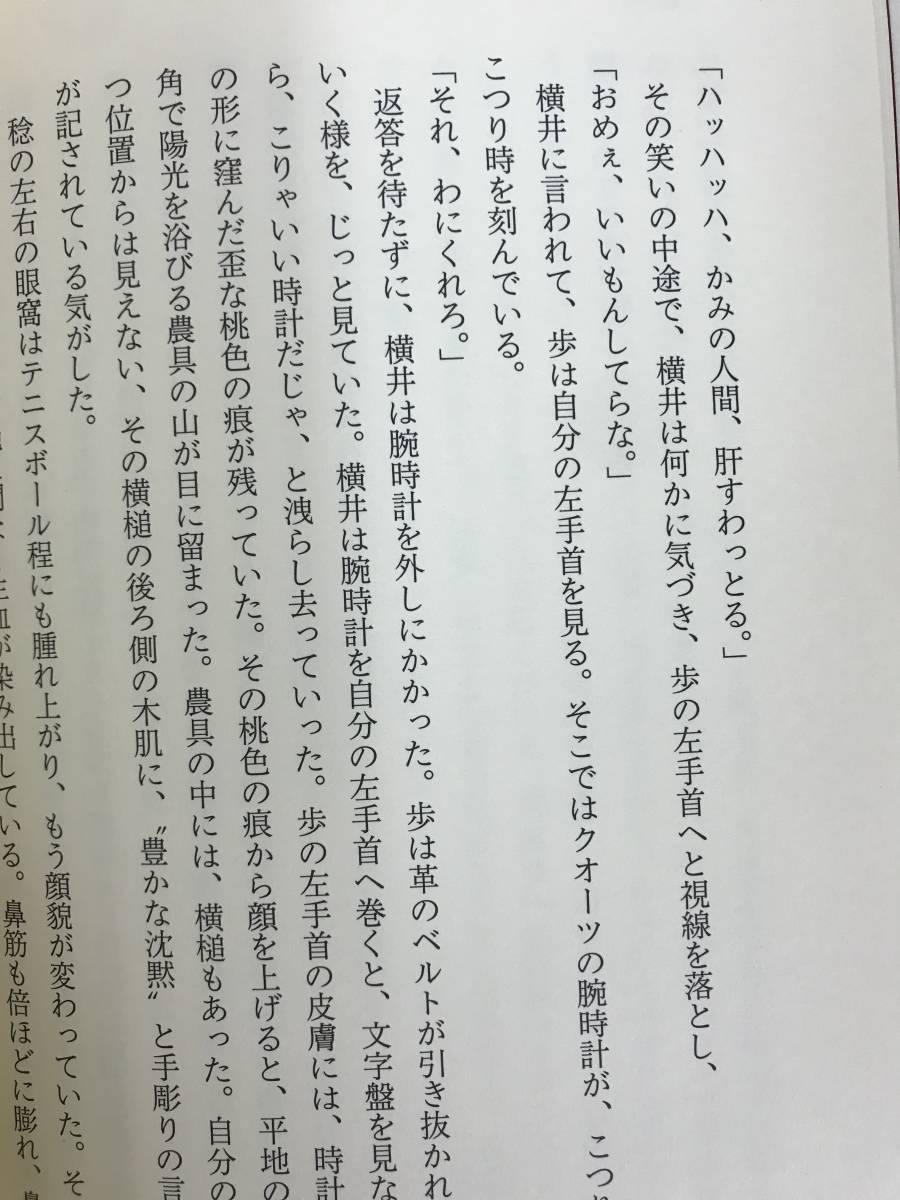 「ハッハッハ、かみの人間、肝すわっとる。」
その笑いの中途で、横井は何かに気づき、歩の左手首へと視線を落とし、
「おめぇ、いいもんしてらな。」
横井に言われて、歩は自分の左手首を見る。そこではクオーツの腕時計が、こつ
こつり時を刻んでいる。
「それ、わにくれろ。」
返答を待たずに、横井は腕時計を外しにかかった。歩は革のベルトが引き抜かれ
いく様を、じっと見ていた。横井は腕時計を自分の左手首へ巻くと、文字盤を見な
ら、こりゃいい時計だじゃ、と洩らし去っていった。歩の左手首の皮膚には、時計
の形に窪んだ歪な桃色の痕が残っていた。その桃色の痕から顔を上げると、平地の
角で陽光を浴びる農具の山が目に留まった。農具の中には、横槌もあった。自分の
つ位置からは見えない、その横槌の後ろ側の木肌に、〝豊かな沈黙〟と手彫りの言
が記されている気がした。
稔の左右の眼窩はテニスボール程にも腫れ上がり、もう顔貌が変わっていた。そ
生血が染み出している。鼻筋も倍ほどに膨れ、